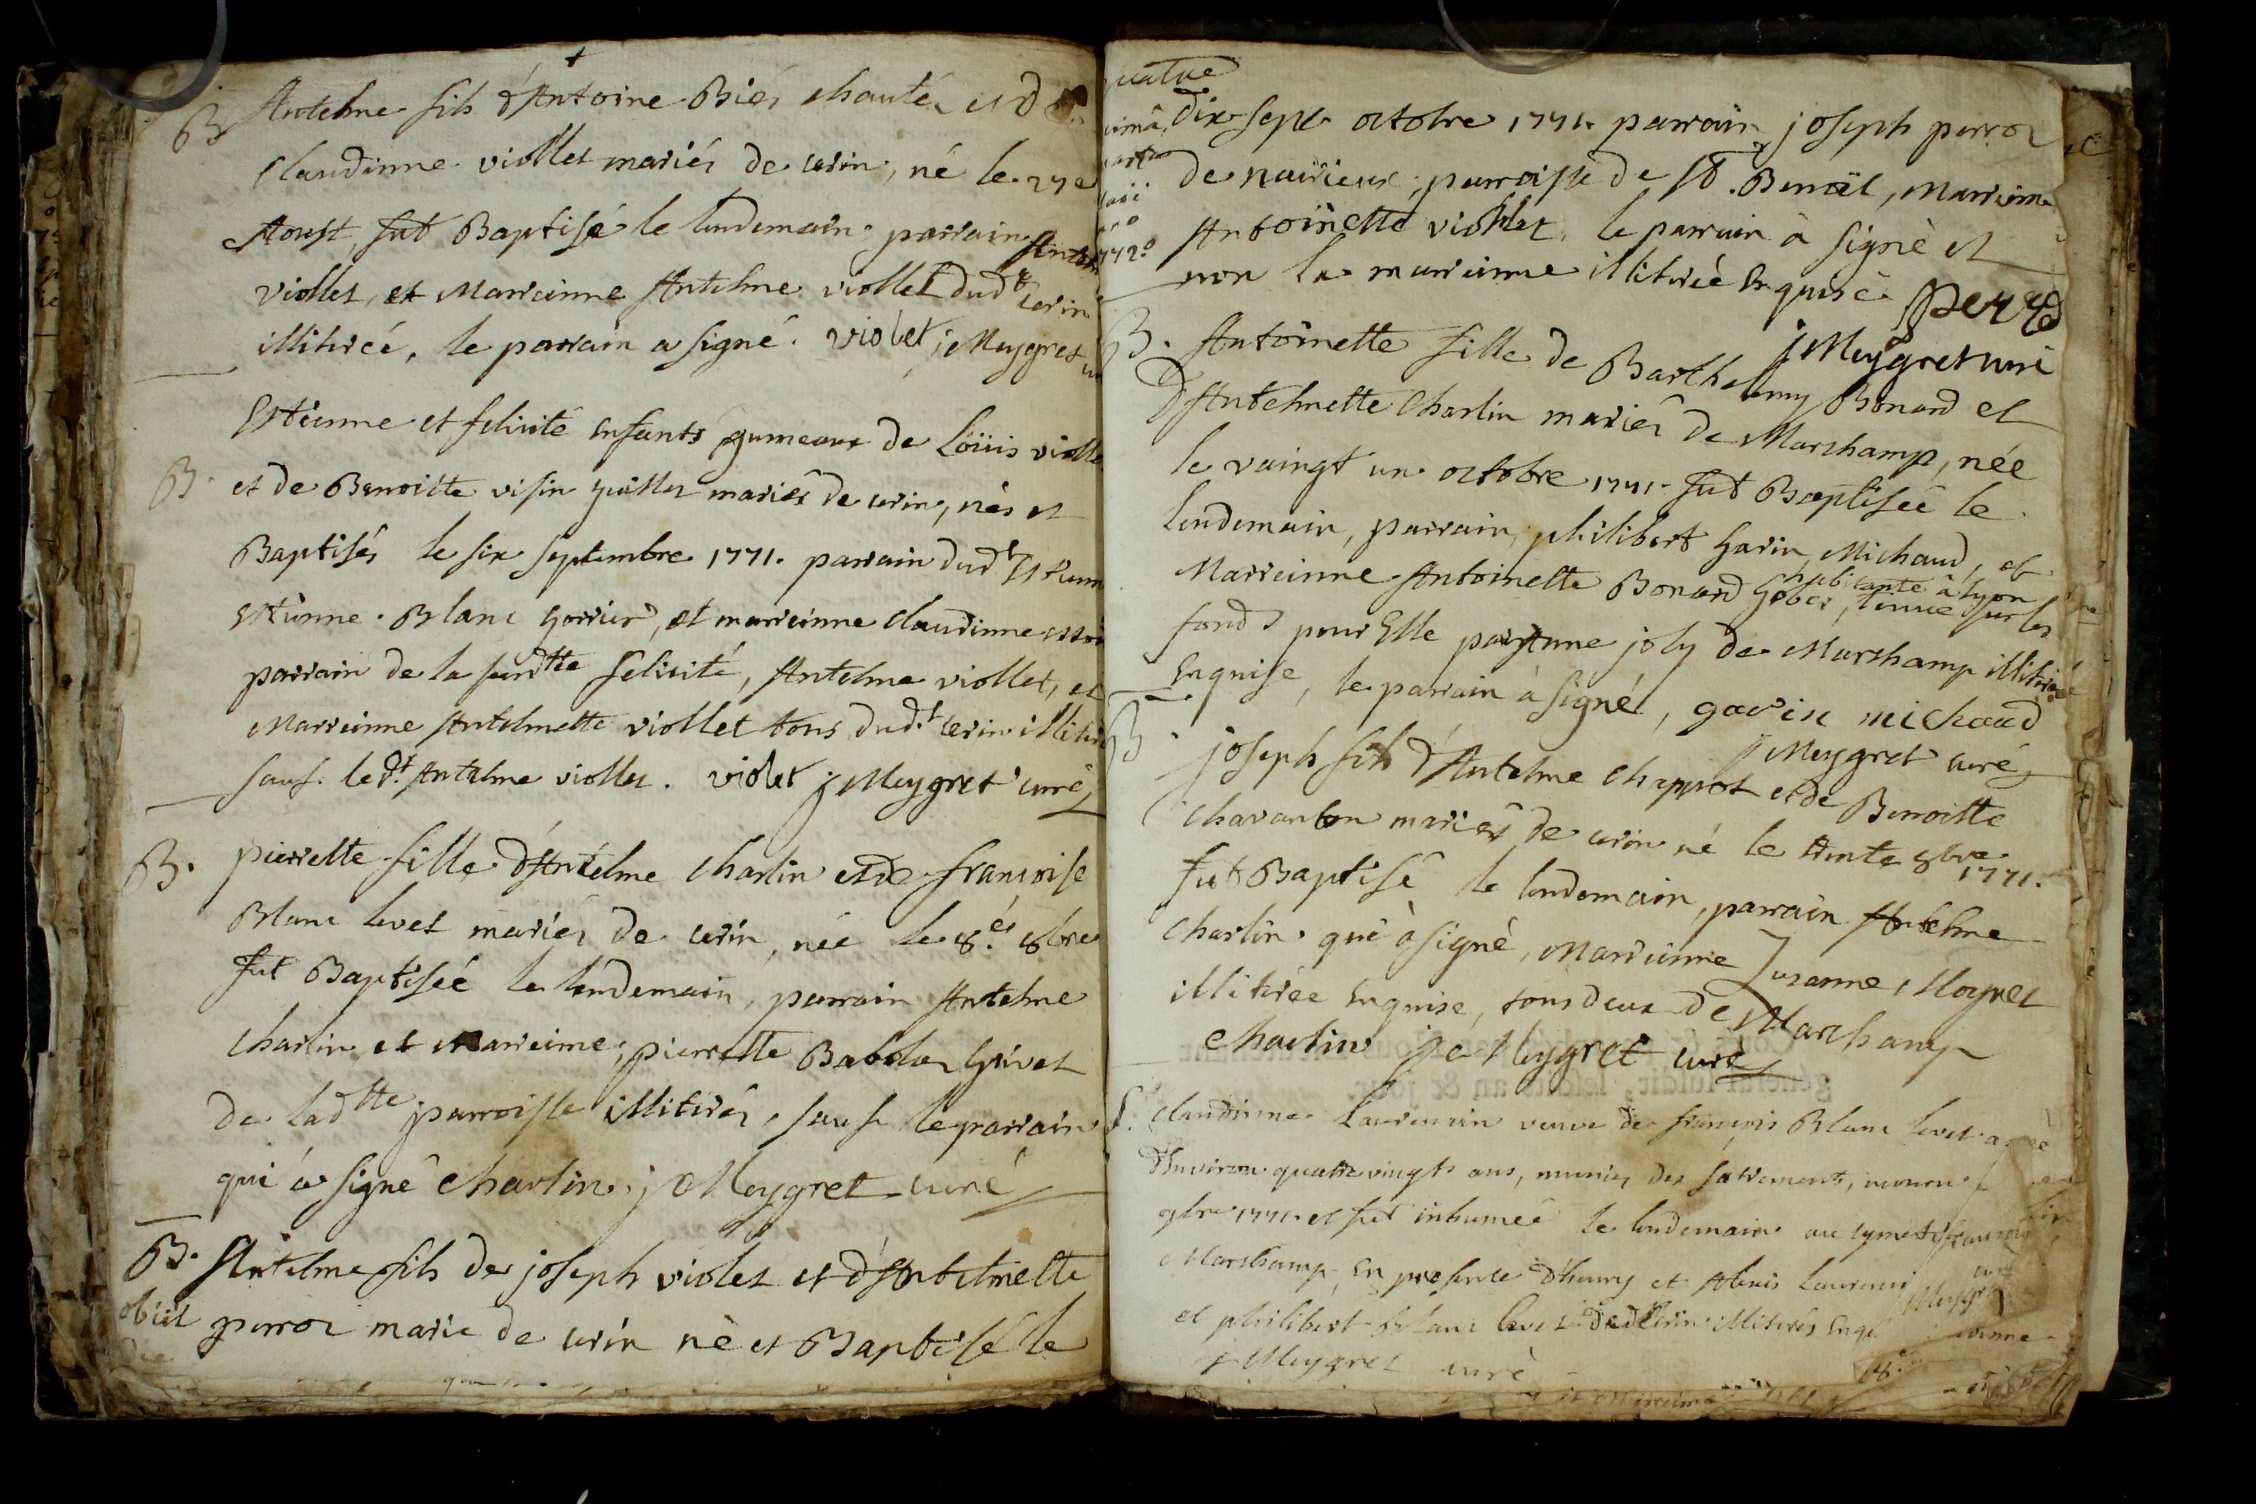 B Antelme fils d'Antoine Biés chanter et de
Claudinne viollet mariés de cerin, né le 27e
Aoust, fut Baptisé le lendemain parrain Antelme
viollet, et Marreinne Antelme viollet dudt cerin
illitirée, le parrain a signé. violet, j Meygret
Estienne et felicité Enfants gumeaux de Loüis viollet
B. et de Benoitte visin guillet mariés de cerin, nés et
Baptisés le six septembre 1771. parrain dudt Estienne
Estienne Blanc gorrier, et marreinne Claudinne
parrain de la susdtte felicité, Antelme viollet, et
Marreinne Antelmette viollet tous dudt cerin illitirés
sauf le dt Antelme viollet. violet j Meygret curé
B. pierrette fille d'Antelme Charlin et de francoise
Blanc levet mariés de cerin, née le 8e 8bre
fut Baptisée le lendemain, parrain Antelme
Charlin et Marreinne, pierrette Babolar Grivet
de ladtte parroisse illitirés, sauf le parrain
qui à signé Charlin j Meygret curé
B. Antelme fils de joseph violet et d'Antelmette
obiit perroz marié de cerin né et Baptisé le
quatre
dix sept octobre 1771. parrain joseph perroz
de nairieux, parroisse de St. Benoît, Marreinne
Antoinette viollet, le parrain à signé et
1772.
non la marreinne illitirée Enquise perro
j Meygret curé
B. Antoinette fille de Barthelemy Bonard et
d'Antelmette Charlin mariés de Marchamp, née
le vaingt un octobre 1771. fut Baptisée le
lendemain, parrain, philibert Garin Michaud, et
habitante à lyon
Marreinne Antoinette Bonard Gober, tenue sur les
fonds pour Elle par june joly de Marchamp illitirée
Enquise, le parrain à signé, gavin michaud
j Meygret curé
B. joseph fils d'Antelme Chappot et de Benoitte
Chavanton mariés de cerin né le trente 8bre 1771.
fut Baptisé le lendemain, parrain Antelme
Charlin qui à signé, Marreinne Suzanne Moynet
illitirée Enquise, tous deux de Marchamp
Charlin j Meygret curé
S. Claudinne Laurencin veuve de françois Blanc levet agée
d'Environ quatre vingts ans, munies des sacrements, mourut
9bre 1771. et fut inhumée le lendemain au cymetiere
Marchamp, En presence d'henry et Alexis Laurencin
et philibert Blanc levet dudt cerin illitirés Enquis
j Meygret curé